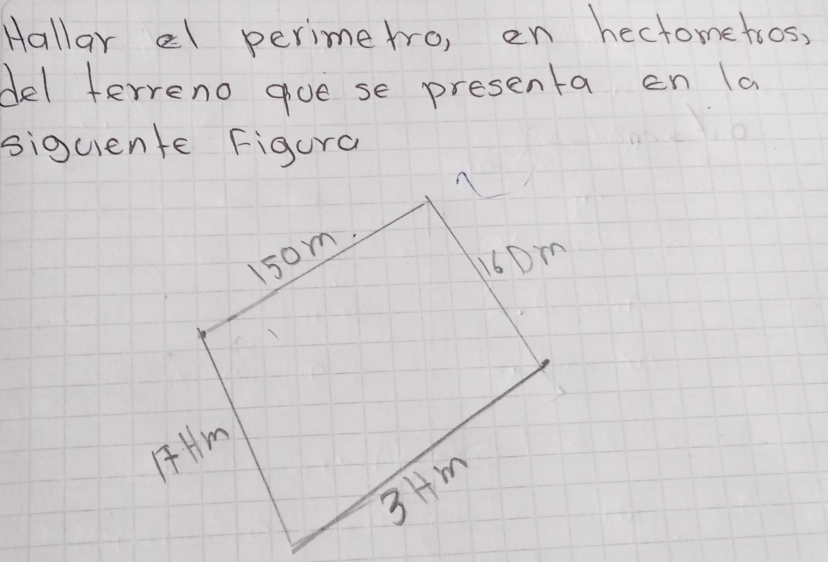 Hallar el perimetro, en hectometros,
del terreno que se presenta en la
siguiente Figura
150m.
16Dm
17Hm
3Hm